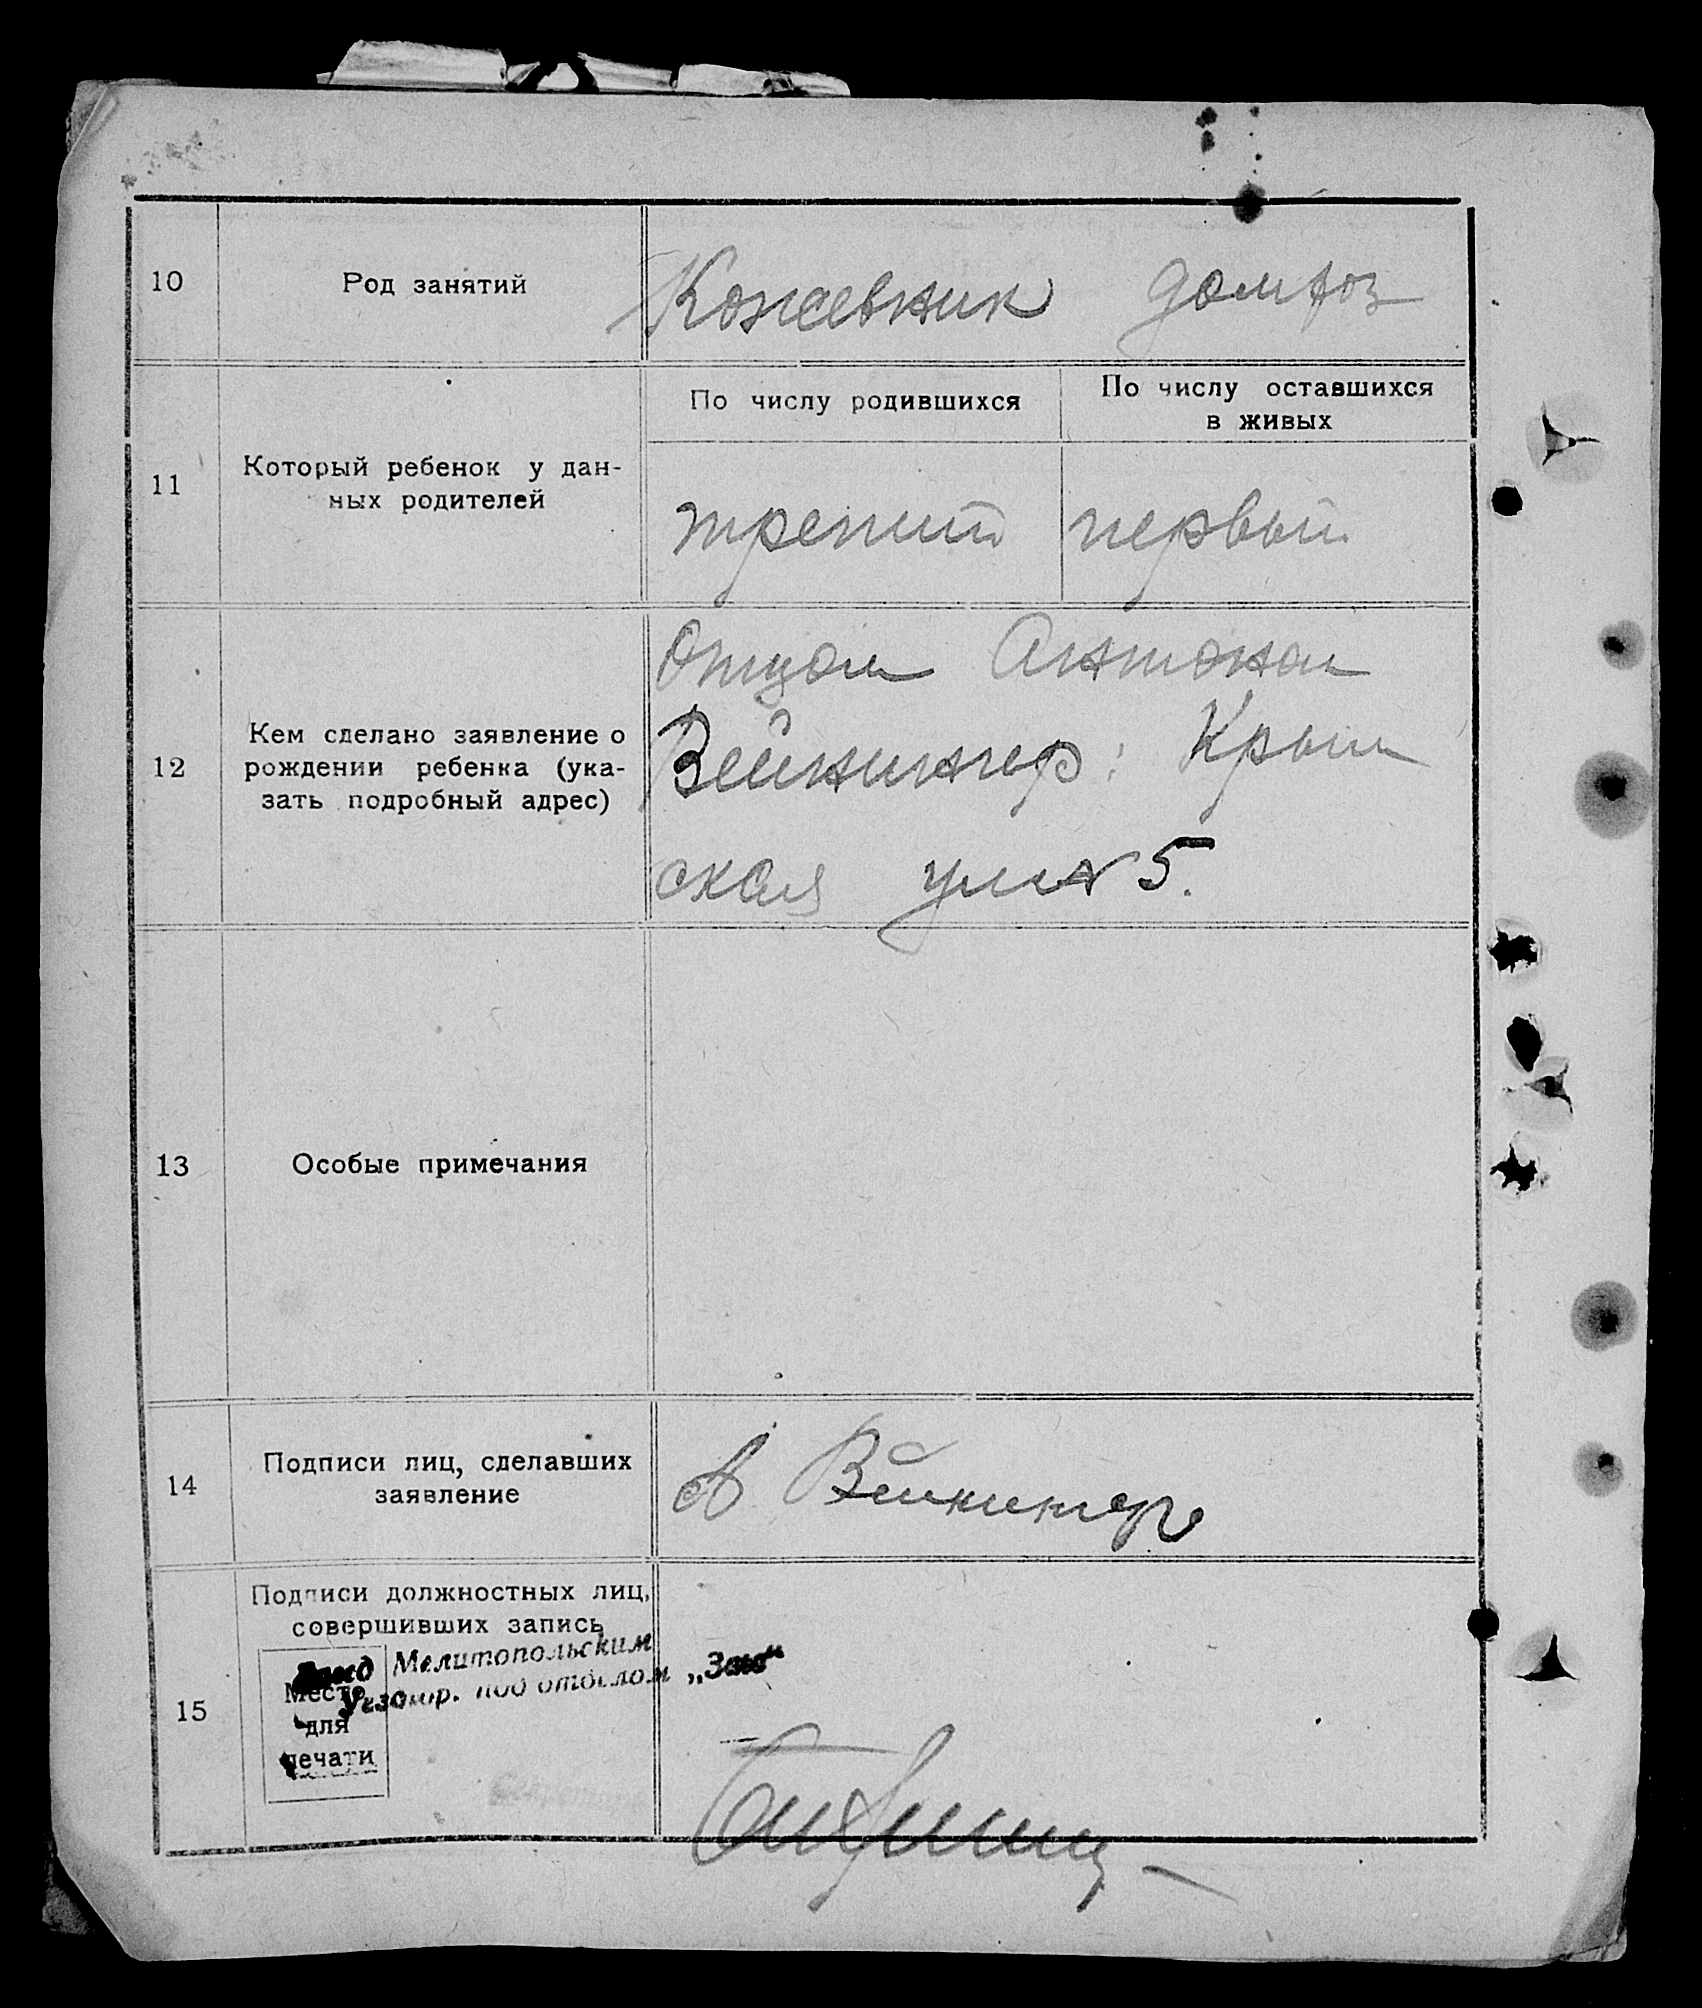 10
Род занятий
Кожевник домхоз
11
Который ребенок у дан-
ных родителей
По числу родившихся
По числу оставшихся
в живых
третий
первый
12
Кем сделано заявление о
рождении ребенка (ука-
зать подробный адрес)
Отцом Антоном
Вейнингер: Крым
ская ул № 5.
13
Особые примечания
14
Подписи лиц, сделавших
заявление
А Вейнингер
15
Подписи должностных лиц,
совершивших запись
Мелитопольским
подотделом „Загс“
Место
для
печати